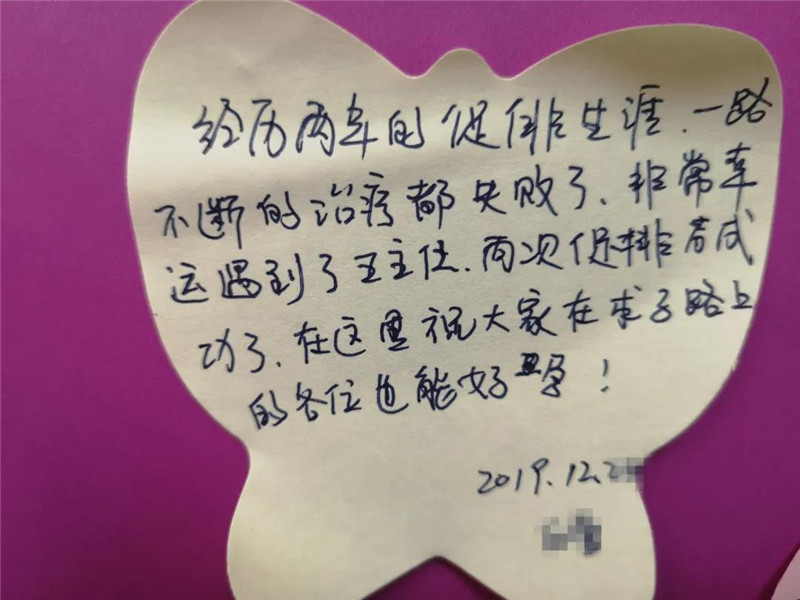 经历两年的促排生涯、一路
不断的治疗都失败了、非常幸
运遇到了王主任、两次促排就成
功了、在这里祝大家在求子路上
的各位也能好孕!
2019.12.2